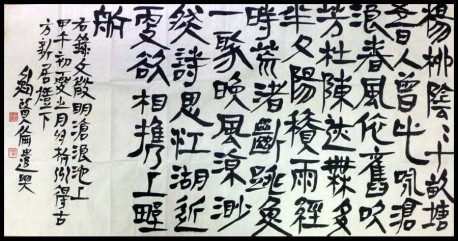 楊柳陰陰十畝塘
昔人曾此咏滄
浪春風依舊吹
芳杜陳迹無多
半夕陽積雨經
時荒渚斷跳魚
一聚晚風涼渺
然詩思江湖近
更欲相攜上野
航
右錄文徵明滄浪池上
甲午初夏上月
方新居燈下